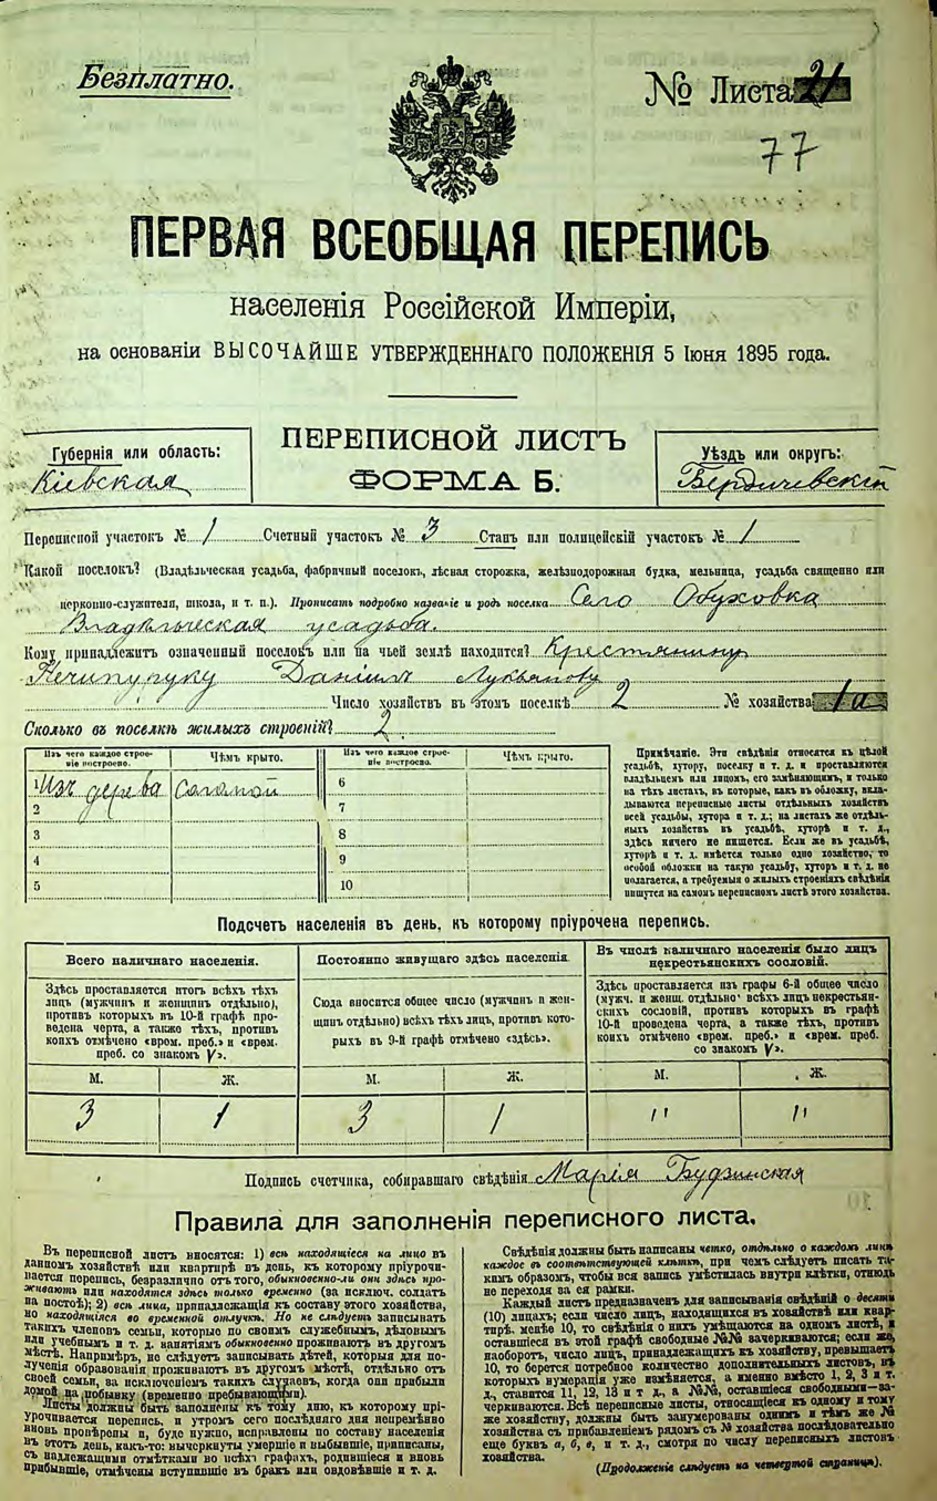 Безплатно.
№ Листа 21
77
ПЕРВАЯ ВСЕОБЩАЯ ПЕРЕПИСЬ
населенія Россійской Имперіи,
на основаніи ВЫСОЧАЙШЕ УТВЕРЖДЕННАГО ПОЛОЖЕНІЯ 5 Іюня 1895 года.
Губернія или область:
Кіевская
ПЕРЕПИСНОЙ ЛИСТЪ
ФОРМА Б.
Уѣздъ или округъ:
Бердичевскій
Переписной участокъ № 1 Счетный участокъ № 3 Станъ или полицейскій участокъ № 1
Какой поселокъ? (Владѣльческая усадьба, фабричный поселокъ, лѣсная сторожка, желѣзнодорожная будка, мельница, усадьба священно или
церковно-служителя, школа, и т. п.). Прописать подробно названіе и родъ поселка Село Обуховка
Владѣльческая усадьба.
Кому принадлежитъ означенный поселокъ или на чьей землѣ находится? Крестянину
Нечипуруку Даніилъ Лукьянову
Число хозяйствъ въ этомъ поселкѣ 2 № хозяйства 1а
Сколько въ поселкѣ жилыхъ строеній? 2
Изъ чего каждое строеніе построено. Чѣмъ крыто. Изъ чего каждое строеніе построено. Чѣмъ крыто.
1 Изъ дерева 6
2 7
3 8
4 9
5 10
Примѣчаніе. Эти свѣдѣнія относятся къ цѣлой
усадьбѣ, хутору, поселку и т. д. и проставляются
владѣльцемъ или лицомъ, его замѣняющимъ, и только
на тѣхъ листахъ, въ которые, какъ въ обложку, вкла-
дываются переписные листы отдѣльныхъ хозяйствъ
всей усадьбы, хутора и т. д.; на листахъ же отдѣль-
ныхъ хозяйствъ въ усадьбѣ, хуторѣ и т. д.,
здѣсь ничего не пишется. Если же въ усадьбѣ,
хуторѣ и т. д. имѣется только одно хозяйство, то
особой обложки на такую усадьбу, хуторъ и т. д. не
полагается, а требуемыя о жилыхъ строеніяхъ свѣдѣнія
пишутся на самомъ переписномъ листѣ этого хозяйства.
Подсчетъ населенія въ день, къ которому пріурочена перепись.
Всего наличнаго населенія.
Здѣсь проставляется итогъ всѣхъ тѣхъ
лицъ (мужчинъ и женщинъ отдѣльно),
противъ которыхъ въ 10-й графѣ про-
ведена черта, а также тѣхъ, противъ
коихъ отмѣчено «врем. преб.» и «врем.
преб. со знакомъ V».
М. Ж.
3 1
Постоянно живущаго здѣсь населенія
Сюда вносится общее число (мужчинъ и жен-
щинъ отдѣльно) всѣхъ тѣхъ лицъ, противъ кото-
рыхъ въ 9-й графѣ отмѣчено «здѣсь».
М. Ж.
3 1
Въ числѣ наличнаго населенія было лицъ
некрестьянскихъ сословій.
Здѣсь проставляется изъ графы 6-й общее число
(мужч. и женщ. отдѣльно) всѣхъ лицъ некрестьян-
скихъ сословій, противъ которыхъ въ графѣ
10-й проведена черта, а также тѣхъ, противъ
коихъ отмѣчено «врем. преб.» и «врем. преб.
со знакомъ V».
М. Ж.
" "
Подпись счетчика, собиравшаго свѣдѣнія Марія Будзинская
Правила для заполненія переписного листа.
Въ переписной листъ вносятся: 1) всѣ находящіеся на лицо въ
данномъ хозяйствѣ или квартирѣ въ день, къ которому пріурочи-
вается перепись, безразлично отъ того, обыкновенно-ли они здѣсь про-
живаютъ или находятся здѣсь только временно (за исключ. солдатъ
на постоѣ); 2) всѣ лица, принадлежащія къ составу этого хозяйства,
но находящіяся во временной отлучкѣ. Но не слѣдуетъ записывать
такихъ членовъ семьи, которые по своимъ служебнымъ, дѣловымъ
или учебнымъ и т. д. занятіямъ обыкновенно проживаютъ въ другомъ
мѣстѣ. Напримѣръ, не слѣдуетъ записывать дѣтей, которыя для по-
лученія образованія проживаютъ въ другомъ мѣстѣ, отдѣльно отъ
своей семьи, за исключеніемъ такихъ случаевъ, когда они прибыли
домой на побывку (временно пребывающими).
Листы должны быть заполнены къ тому дню, къ которому прі-
урочивается перепись, и утромъ сего послѣдняго дня непремѣнно
вновь провѣрены и, буде нужно, исправлены по составу населенія
въ этотъ день, какъ-то: вычеркнуты умершіе и выбывшіе, приписаны,
съ надлежащими отмѣтками во всѣхъ графахъ, родившіеся и вновь
прибывшіе, отмѣчены вступившіе въ бракъ или овдовѣвшіе и т. д.
Свѣдѣнія должны быть написаны четко, отдѣльно о каждомъ лицѣ
каждое въ соотвѣтствующей клѣткѣ, при чемъ слѣдуетъ писать та-
кимъ образомъ, чтобы вся запись умѣстилась внутри клѣтки, отнюдь
не переходя за ея рамки.
Каждый листъ предназначенъ для записыванія свѣдѣній о десяти
(10) лицахъ; если число лицъ, находящихся въ хозяйствѣ или квар-
тирѣ, менѣе 10, то свѣдѣнія о нихъ умѣщаются на одномъ листѣ, и
оставшіеся въ этой графѣ свободные №№ зачеркиваются; если же,
наоборотъ, число лицъ, принадлежащихъ къ хозяйству, превышаетъ
10, то берется потребное количество дополнительныхъ листовъ, въ
которыхъ нумерація уже измѣняется, а именно вмѣсто 1, 2, 3 и т.
д., ставится 11, 12, 13 и т. д., а №№, оставшіеся свободными—за-
черкиваются. Всѣ переписные листы, относящіеся къ одному и тому
же хозяйству, должны быть занумерованы однимъ и тѣмъ же №
хозяйства съ прибавленіемъ рядомъ съ № хозяйства послѣдовательно
еще буквъ а, б, в, и т. д., смотря по числу переписныхъ листовъ
хозяйства.
(Продолженіе слѣдуетъ на четвертой страницѣ).